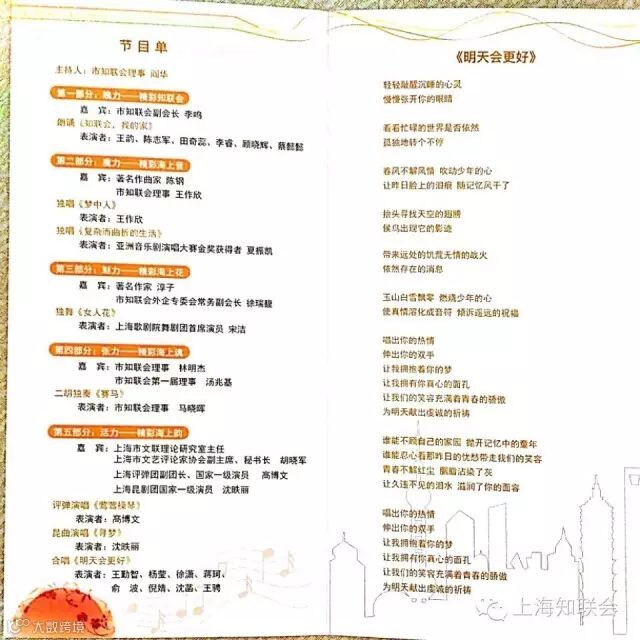 节目单
主持人：市知联会理事 阎华
第一部分：魄力——精彩知联会
嘉 宾：市知联会副会长 李鸣
朗诵《知联会，我的家》
表演者：王韵、陈志军、田奇蕊、李睿、顾晓辉、蔡懿懿
第二部分：魔力——精彩海上音
嘉 宾：著名作曲家 陈钢
市知联会理事 王作欣
独唱《梦中人》
表演者：王作欣
独唱《复杂而曲折的生活》
表演者：亚洲音乐剧演唱大赛金奖获得者 夏振凯
第三部分：魅力——精彩海上花
嘉 宾：著名作家 淳子
市知联会外企专委会常务副会长 徐瑞馥
独舞《女人花》
表演者：上海歌剧院舞剧团首席演员 宋洁
第四部分：张力——精彩海上魂
嘉 宾：市知联会理事 林明杰
市知联会第一届理事 汤兆基
二胡独奏《赛马》
表演者：市知联会理事 马晓晖
第五部分：活力——精彩海上韵
嘉 宾：上海市文联理论研究室主任
上海市文艺评论家协会副主席、秘书长 胡晓军
上海评弹团副团长、国家一级演员 高博文
上海昆剧团国家一级演员 沈昳丽
评弹演唱《莺莺操琴》
表演者：高博文
昆曲演唱《寻梦》
表演者：沈昳丽
合唱《明天会更好》
表演者：王勤智、杨莹、徐潇、蒋珂、
俞 波、倪婧、沈菡、王骋
《明天会更好》
轻轻敲醒沉睡的心灵
慢慢张开你的眼睛
看看忙碌的世界是否依然
孤独地转个不停
春风不解风情 吹动少年的心
让昨日脸上的泪痕 随记忆风干了
抬头寻找天空的翅膀
候鸟出现它的影迹
带来远处的饥荒无情的战火
依然存在的消息
玉山白雪飘零 燃烧少年的心
使真情溶化成音符 倾诉遥远的祝福
唱出你的热情
伸出你的双手
让我拥抱着你的梦
让我拥有你真心的面孔
让我们的笑容充满着青春的骄傲
为明天献出虔诚的祈祷
谁能不顾自己的家园 抛开记忆中的童年
谁能忍心看那昨日的忧愁带走我们的笑容
青春不解红尘 胭脂沾染了灰
让久违不见的泪水 滋润了你的面容
唱出你的热情
伸出你的双手
让我拥抱着你的梦
让我拥有你真心的面孔
让我们的笑容充满着青春的骄傲
为明天献出虔诚的祈祷
大数跨境
上海知联会